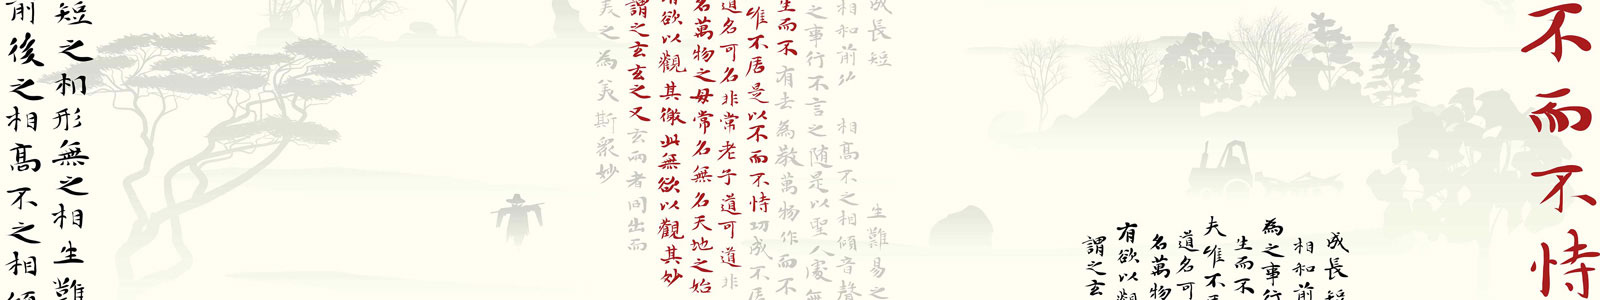 不而不恃
成長短
相和前
為之事行
生而不
夫唯不居
道名可
名萬物
有欲以觀
謂之玄
成長短 生難易之
相和前 相高不之相傾音聲
之事行不言之隨是以聖人處無
生而不有去為教萬物作而不
唯不居是以不而不恃功成不居
道名可名非常老子道可道非
名萬物之母常名無名天地之始
有欲以觀其徼此無欲以觀其妙
謂之玄玄之又玄而者同出而
美之為美斯眾妙
短之相形無之相生難
前後之相高不之相傾